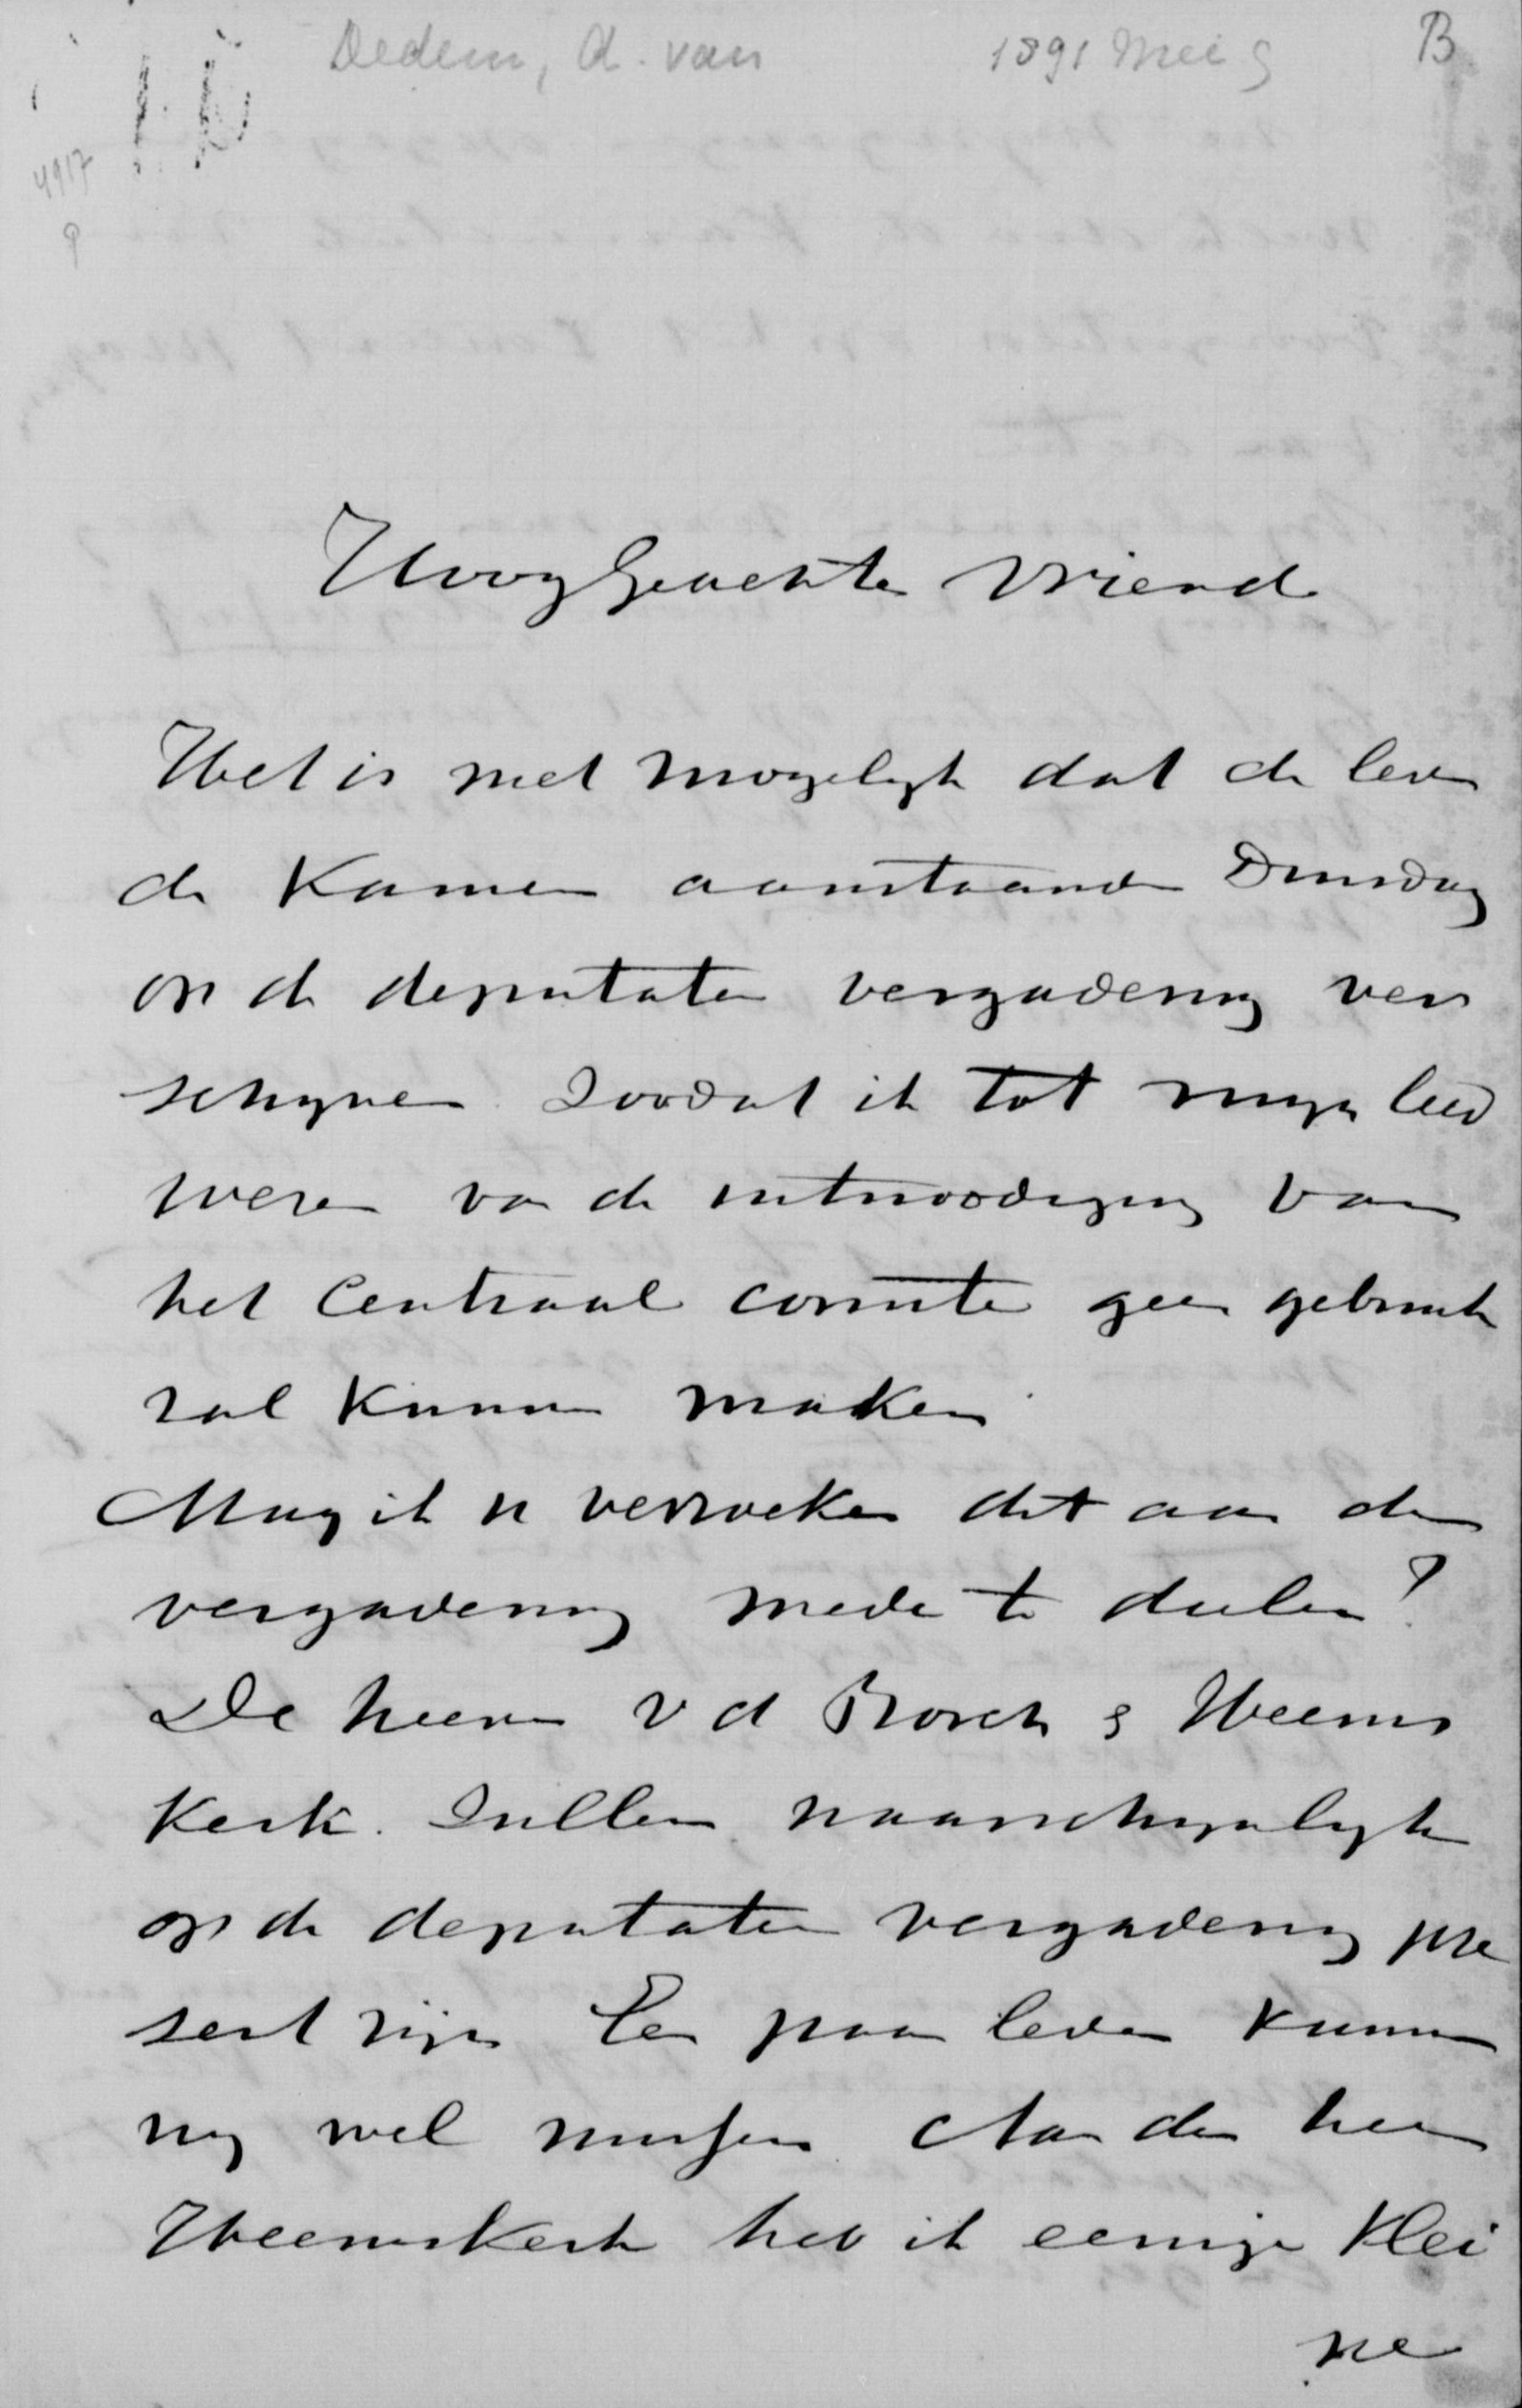 Dedem, A. van 1891 Mei 9 B
4917
9
HoogGeachte Vriend
Het is niet mogelyk dat de leden
de Kamer aanstaande Dinsdag
op de deputaten vergadering ver
schynen. Zoodat ik tot myn leed
wezen van de uitnoodiging van
het Centraal comite geen gebruik
zal kunnen maken.
Mag ik u verzoeken dit aan de
vergadering mede te deelen?
De heeren v d Borch & Heems
kerk. Zullen waarschynlyk
op de deputaten vergadering pre
sent zijn Een paar leden kunnen
wy wel missen. Aan den heer
Heemskerk heb ik eenige klei
ne